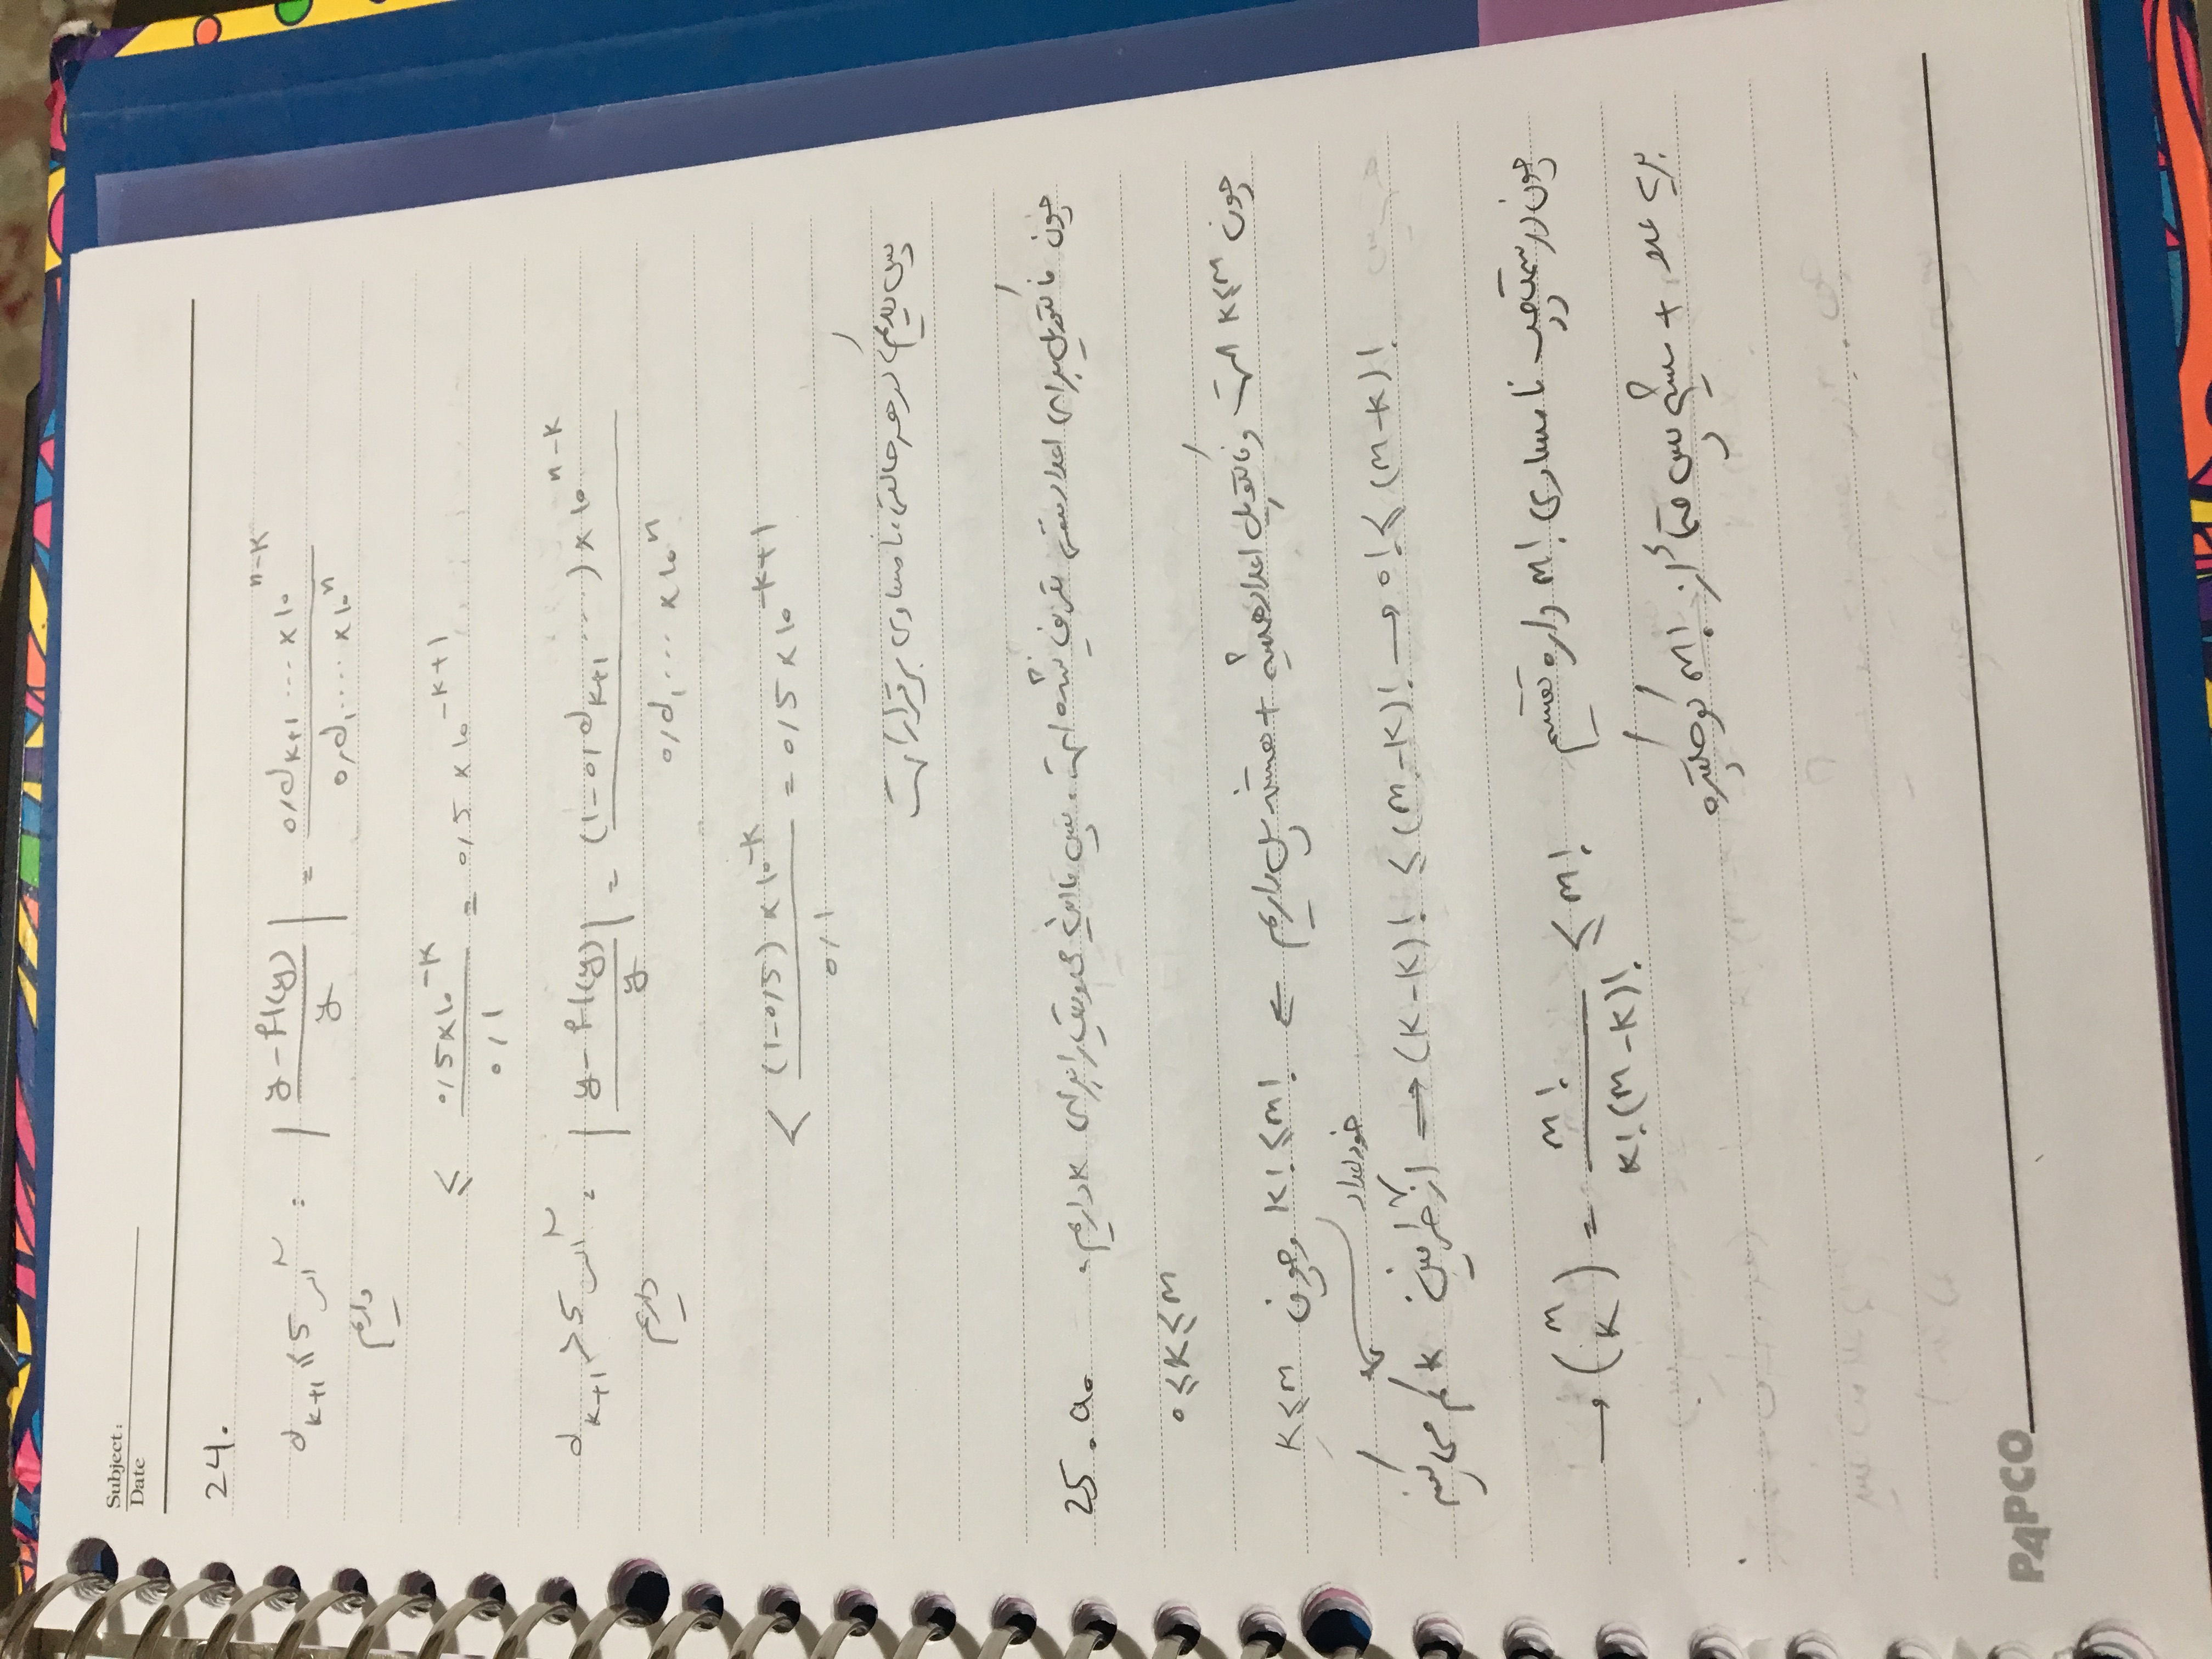 Subject:
Date
24.
اگر d_{k+1} ≤ 5 : |y - fl(y) / y| = 0,d_{k+1} ... × 10^{n-k} / 0,d_1 .... × 10^n
داریم
≤ 0,5 × 10^{-k} / 0,1 = 0,5 × 10^{-k+1}
اگر d_{k+1} > 5 : |y - fl(y) / y| = (1 - 0,d_{k+1} ...) × 10^{n-k} / 0,d_1 ... × 10^n
داریم
< (1 - 0,5) × 10^{-k} / 0,1 = 0,5 × 10^{-k+1}
پس دیدیم که در هر حالتی، نامساوی برقرار است
25. a. چون فاکتوریل برای اعداد منفی تعریف نشده است. پس ما این محدودیت را برای k داریم.
0 ≤ k ≤ m
چون k ≤ m است و فاکتوریل اعداد همیشه + هستند پس داریم ← k! ≤ m! و چون k ≤ m
خود اعداد
از طرفین k کم می‌کنیم → (k-k)! ≤ (m-k)! → 0! ≤ (m-k)!
→ (m k) = m! / k!(m-k)! ≤ m! چون در سمت چپ نامساوی m! داره تقسیم
+ میشه پس حتماً از m! کوچکتره
PAPCO